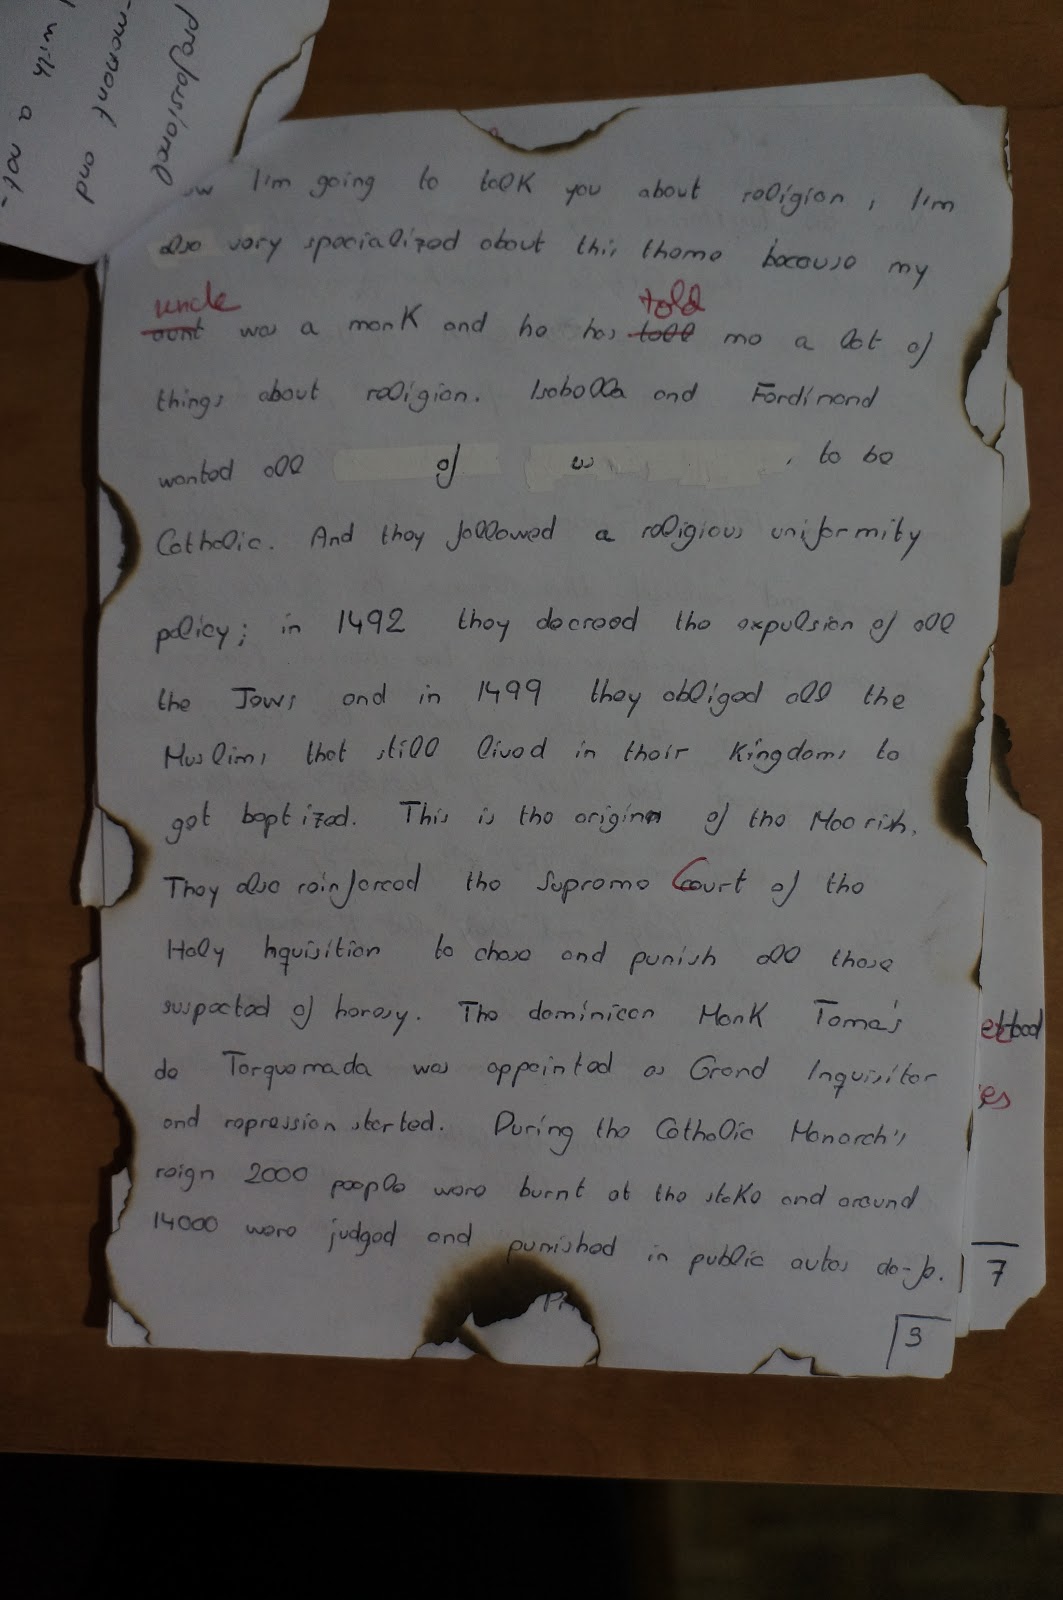 professional
-monont and
with a not-
I'm going to talk you about religion, I'm
also very specialized about this theme because my
uncle told
aunt was a monK and he has tell me a lot of
things about religion. Isabella and Ferdinand
wanted all of us to be
Catholic. And they followed a religious uniformity
policy; in 1492 they decreed the expulsion of all
the Jews and in 1499 they obliged all the
Muslims that still lived in their Kingdoms to
get baptized. This is the origin of the Moorish.
They also reinforced the Supreme Court of the
Holy Inquisition to chase and punish all those
suspected of heresy. The dominican Monk Tomás
de Torquemada was appointed as Grand Inquisitor
and repression started. During the Catholic Monarch's
reign 2000 people were burnt at the stake and around
14000 were judged and punished in public autos de-fe.
3
7
es